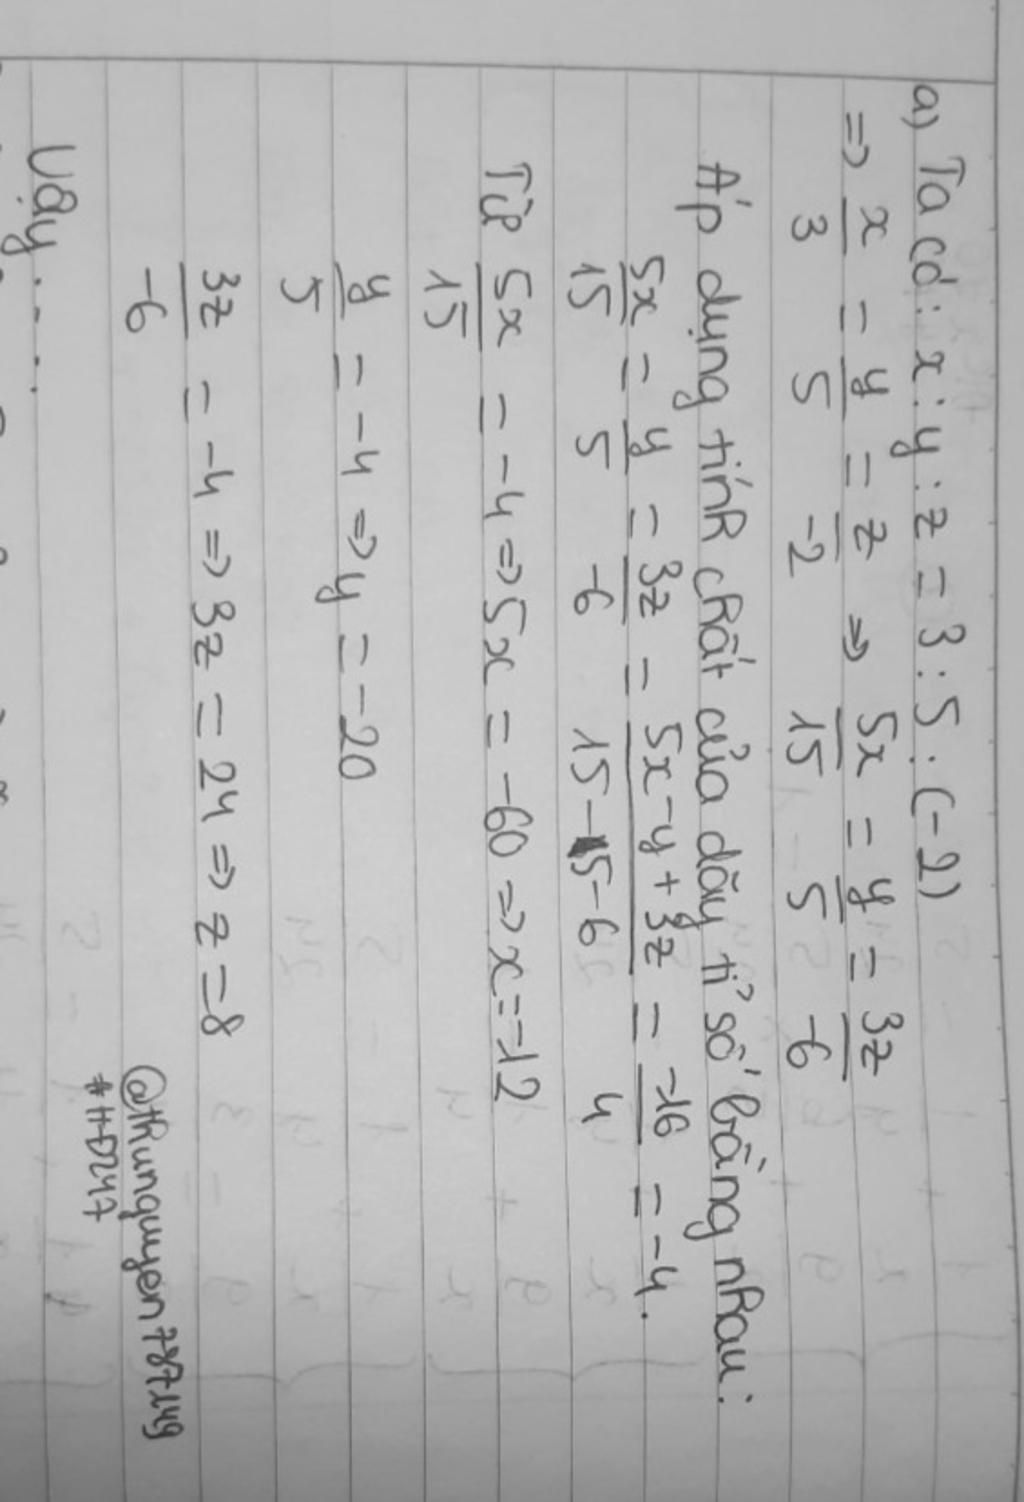 a) Ta có: x : y : z = 3 : 5 : (-2)
=> x/3 = y/5 = z/-2 => 5x/15 = y/5 = 3z/-6
Áp dụng tính chất của dãy tỉ số bằng nhau:
5x/15 = y/5 = 3z/-6 = 5x-y+3z/15-5-6 = -16/4 = -4.
Từ 5x/15 = -4 => 5x = -60 => x = -12
y/5 = -4 => y = -20
3z/-6 = -4 => 3z = 24 => z = 8
Vậy.....
@thunguyen787149
#HĐ247